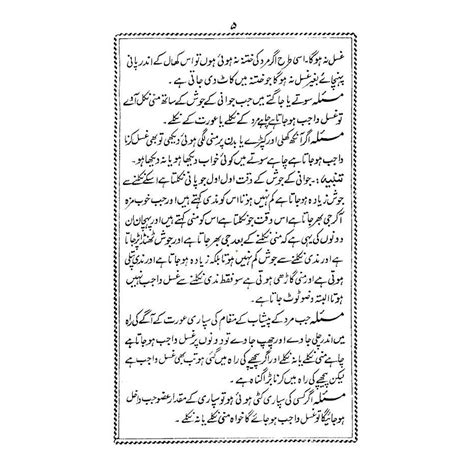 ۵
غسل نہ ہوگا۔ اسی طرح اگر مرد کی ختنہ نہ ہوئی ہوں تو اس کھال کے اندر پانی
پہنچائے بغیر غسل نہ ہوگا جو ختنہ میں کاٹ دی جاتی ہے۔
مسئلہ سوتے یا جاگتے میں جب جوانی کے جوش کے ساتھ منی نکل آئے
تو غسل واجب ہو جاتا ہے چاہے مرد کے نکلے یا عورت کے نکلے۔
مسئلہ اگر آنکھ کھلی اور کپڑے یا بدن پر منی لگی ہوئی دیکھی تو بھی غسل کرنا
واجب ہوتا ہے چاہے سوتے میں کوئی خواب دیکھا ہو یا نہ دیکھا ہو۔
تنبیہ:۔ جوانی کے جوش کے وقت اول اول جو پانی نکلتا ہے اسکے نکلنے سے
جوش زیادہ ہو جاتا ہے کم نہیں ہوتا اس کو مذی کہتے ہیں اور جب خوب مزہ
آ کر جی بھر جاتا ہے اس وقت جو نکلتا ہے اس کو منی کہتے ہیں اور پہچان ان
دونوں کی یہی ہے کہ منی نکلنے کے بعد جی بھر جاتا ہے اور جوش ٹھنڈا پڑ جاتا
ہے اور مذی نکلنے سے جوش کم نہیں ہوتا بلکہ زیادہ ہو جاتا ہے اور مذی پتلی
ہوتی ہے اور منی گاڑھی ہوتی ہے سو فقط مذی نکلنے سے غسل واجب نہیں
ہوتا البتہ وضو ٹوٹ جاتا ہے۔
مسئلہ جب مرد کے پیشاب کے مقام کی سپاری عورت کے آگے کی راہ
میں اندر چلی جاوے اور چھپ جاوے تو دونوں پر غسل واجب ہو جاتا ہے
چاہے منی نکلے یا نہ نکلے اور اگر پیچھے کی راہ میں گئی ہو تب بھی غسل واجب ہے
لیکن پیچھے کی راہ میں کرنا بڑا گناہ ہے۔
مسئلہ اگر کسی کی سپاری کٹی ہوئی ہو تو سپاری کے مقدار عضو جب داخل
ہو جائیگا تو غسل واجب ہو جائے گا خواہ منی نکلے یا نہ نکلے۔